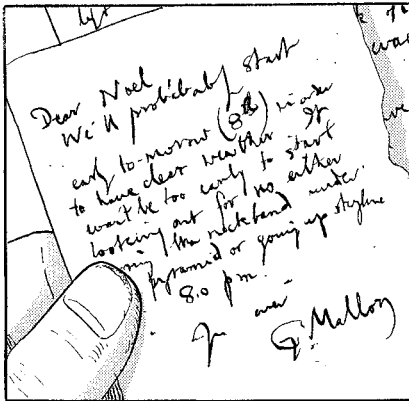 Dear Noel
We'll probably start
early to-morrow (8th) in order
to have clear weather It
won't be too early to start
looking out for us either
ing the rockband under
pyramid or going up skyline
8.0 p.m.
ever
G. Mallory